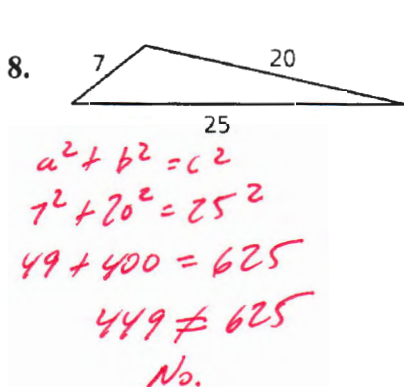 8.
7
20
25
a² + b² = c²
7² + 20² = 25²
49 + 400 = 625
449 ≠ 625
No.